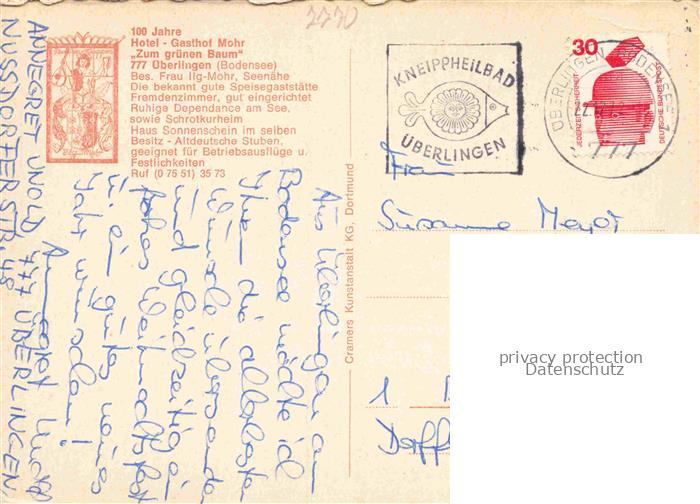 2770
100 Jahre
Hotel - Gasthof Mohr
„Zum grünen Baum"
777 Überlingen (Bodensee)
Bes. Frau Ilg-Mohr, Seenähe
Die bekannt gute Speisegaststätte
Fremdenzimmer, gut eingerichtet
Ruhige Dependance am See,
sowie Schrotkurheim
Haus Sonnenschein im selben
Besitz - Altdeutsche Stuben,
geeignet für Betriebsausflüge u.
Festlichkeiten
Ruf (0 75 51) 35 73
Cramers Kunstanstalt KG, Dortmund
KNEIPPHEILBAD
ÜBERLINGEN
30
JEDERZEIT SICHERHEIT
DEUTSCHE BUNDESPOST
ÜBERLINGEN, BODENSEE
777
Frau
Susanne
1
Aus Überlingen am
Bodensee möchte ich
Ihnen die allerbesten
Wünsche übersenden
und gleichzeitig ein
frohes Weihnachtsfest
u. ein gutes neues
Jahr wünschen!
Annegret Unold
ANNEGRET UNOLD 777 ÜBERLINGEN
NUSSDORFERSTR. 48
privacy protection
Datenschutz